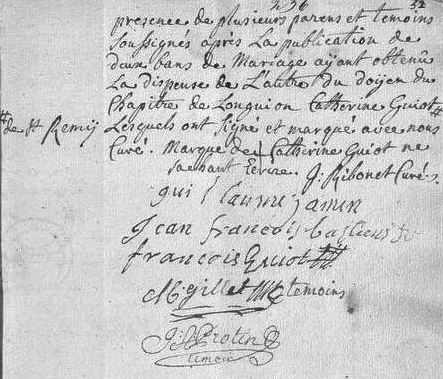 52
presence de plusieurs parens et temoins
soussignés après La publication de
deux bans de Mariage ayant obtenus
La dispense de L'autre du doijen du
Chapitre de Longuion Catherine Guiot #
# de St Remij
Lesquels ont signé et marqué avec nous
Curé. Marque de Catherine Guiot ne
sachant Ecrire. J. Ribonet Curé.
guillaume jamin
Jean françois bastien
francois Guiot
Gillet temoins
J Protin
temoin